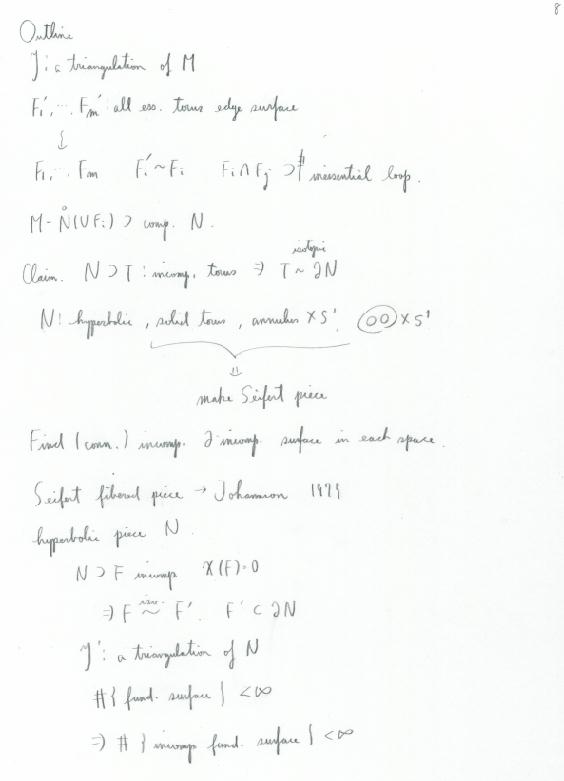 8
Outline
J : a triangulation of M
F₁', ⋯ Fₘ' all ess. torus edge surface
F₁, ⋯ Fₘ Fᵢ' ~ Fᵢ Fᵢ ∩ Fⱼ ⊅ inessential loop.
M - N̊(∪Fᵢ) ⊃ comp. N.
isotopic
Claim. N ⊃ T : incomp. torus ⇒ T ~ ∂N
N : hyperbolic, solid torus, annulus × S¹, (○○) × S¹
⇓
make Seifert piece
Find (conn.) incomp. ∂-incomp. surface in each space.
Seifert fibered piece → Johannson 1979
hyperbolic piece N
N ⊃ F incomp χ(F) = 0
⇒ F ~ F'. F' ⊂ ∂N
J' : a triangulation of N
#{ fund. surface } < ∞
⇒ # { incomp fund. surface } < ∞